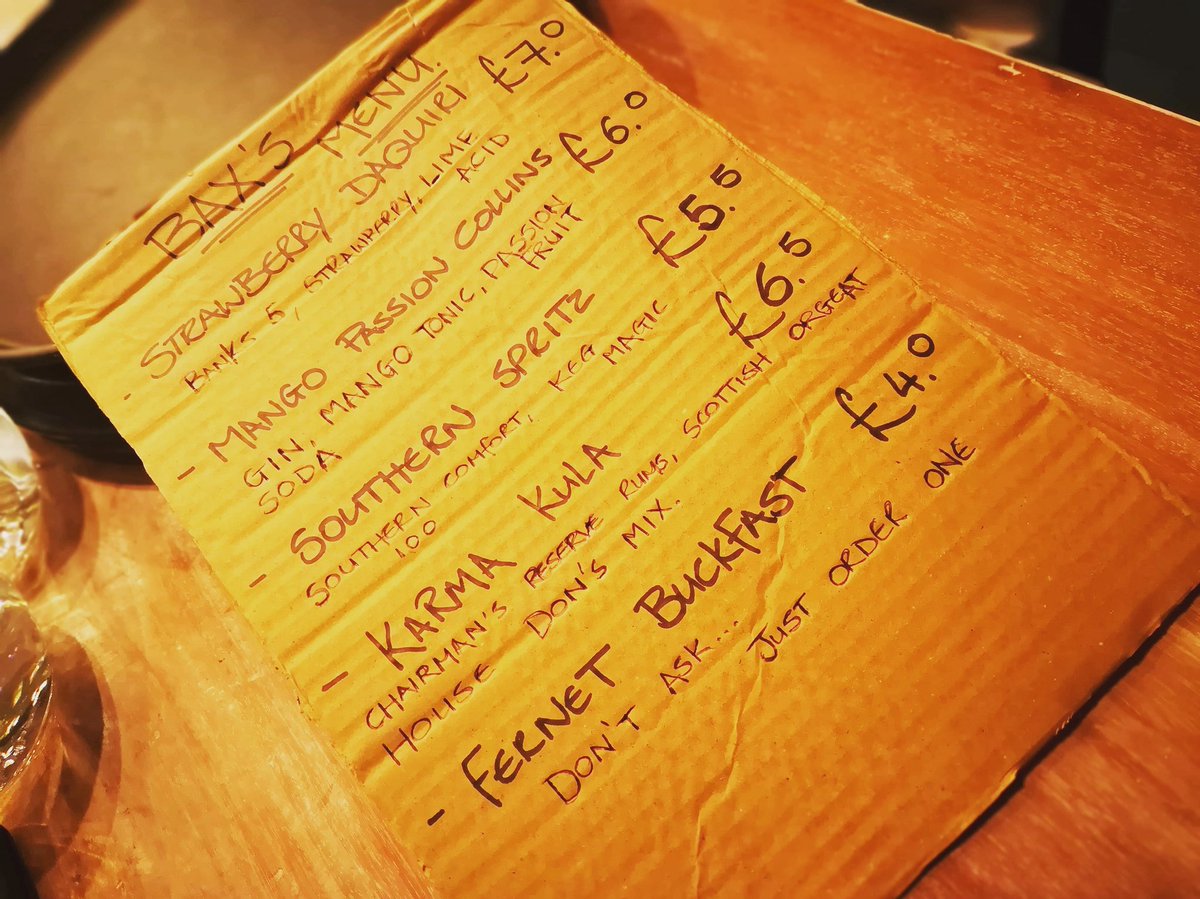 BAX'S MENU.
- STRAWBERRY DAQUIRI £7.0
BANKS 5, STRAWBERRY, LIME
ACID
- MANGO PASSION COLLINS £6.0
GIN, MANGO TONIC, PASSION
FRUIT
SODA
- SOUTHERN SPRITZ £5.5
SOUTHERN COMFORT, KEG MAGIC
100
- KARMA KULA £6.5
CHAIRMAN'S RESERVE RUMS, SCOTTISH ORGEAT
HOUSE DON'S MIX.
- FERNET BUCKFAST £4.0
DON'T ASK... JUST ORDER ONE